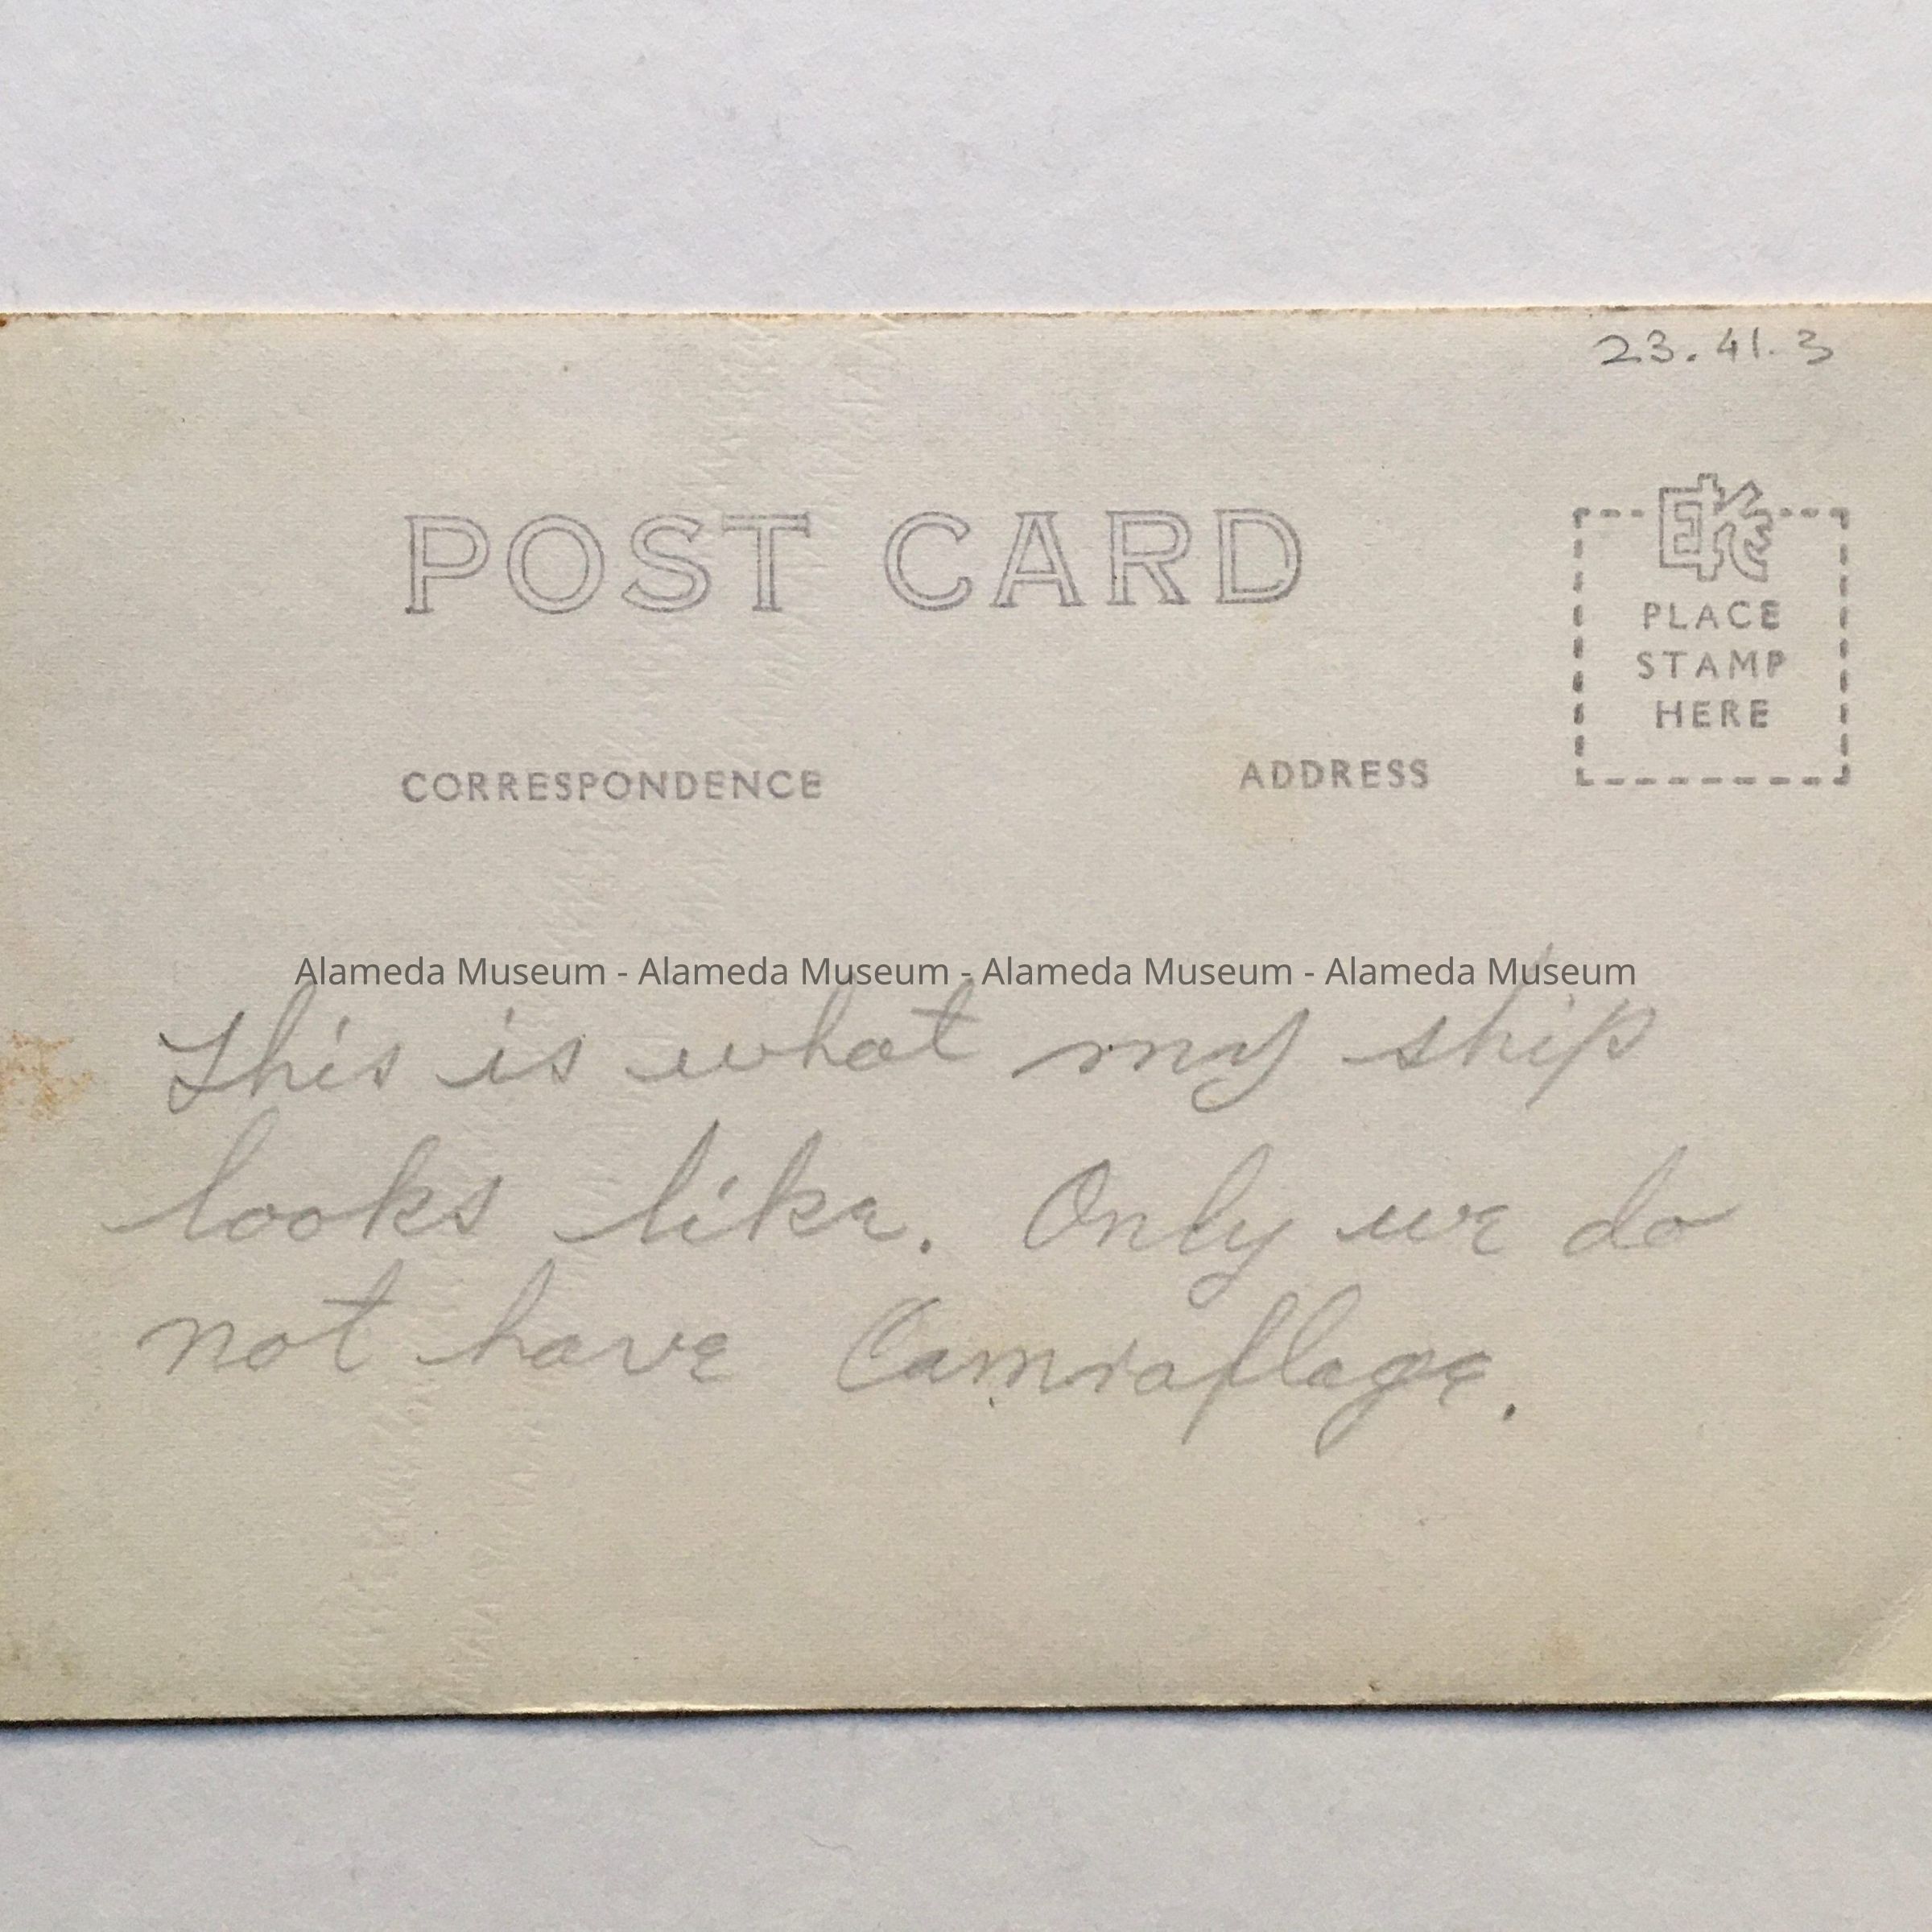 23.41.3
POST CARD
EKC
PLACE
STAMP
HERE
CORRESPONDENCE
ADDRESS
Alameda Museum - Alameda Museum - Alameda Museum - Alameda Museum
This is what my ship
looks like. Only we do
not have Camraflage.